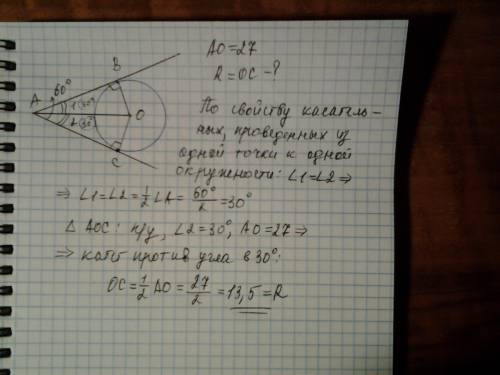 AO=27
R=OC-?
По свойству касатель-
ных, проведенных из
одной точки к одной
окружности: ∠1=∠2 ⇒
B
60°
A
1(30°)
2(30°)
O
C
⇒ ∠1=∠2=1/2 ∠A= 60°/2 =30°
△ AOC: п/у, ∠2=30°, AO=27 ⇒
⇒ катет против угла в 30°:
OC=1/2 AO= 27/2 =13,5=R